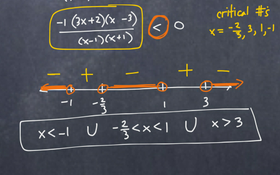 -1 (3x+2)(x-3) / (x-1)(x+1) < 0
critical #s
x = -2/3, 3, 1, -1
- + - + -
-1 -2/3 1 3
x < -1 U -2/3 < x < 1 U x > 3